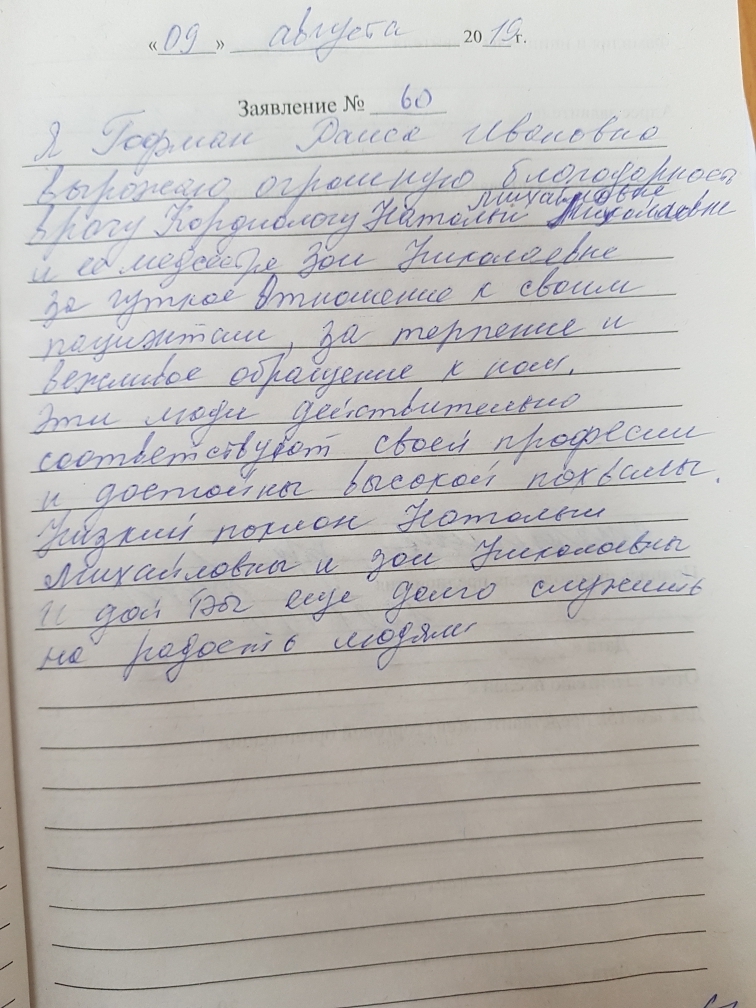 «09» августа 2019г.
Заявление № 60
Я Гофман Раиса Ивановна
выражаю огромную благодарность
Михайловне
врачу Кардиологу Натальи
и ее медсестре Зои Николаевне
за чуткое отношение к своим
пациентам, за терпение и
вежливое обращение к нам.
Эти люди действительно
соответствуют своей професии
и достойны высокой похвалы.
Низкий поклон Натальи
Михайловны и Зои Николаевны
и дай Бог еще долго служить
на радость людям